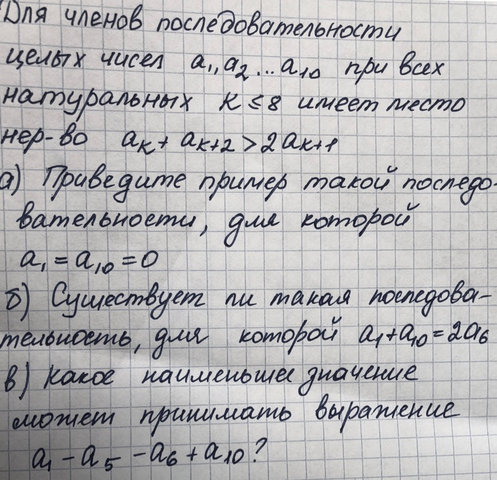 Для членов последовательности
целых чисел a₁, a₂ ... a₁₀ при всех
натуральных к ≤ 8 имеет место
нер-во aₖ + aₖ₊₂ > 2aₖ₊₁
а) Приведите пример такой последо-
вательности, для которой
a₁ = a₁₀ = 0
б) Существует ли такая последова-
тельность, для которой a₁ + a₁₀ = 2a₆
в) Какое наименьшее значение
может принимать выражение
a₁ - a₅ - a₆ + a₁₀?